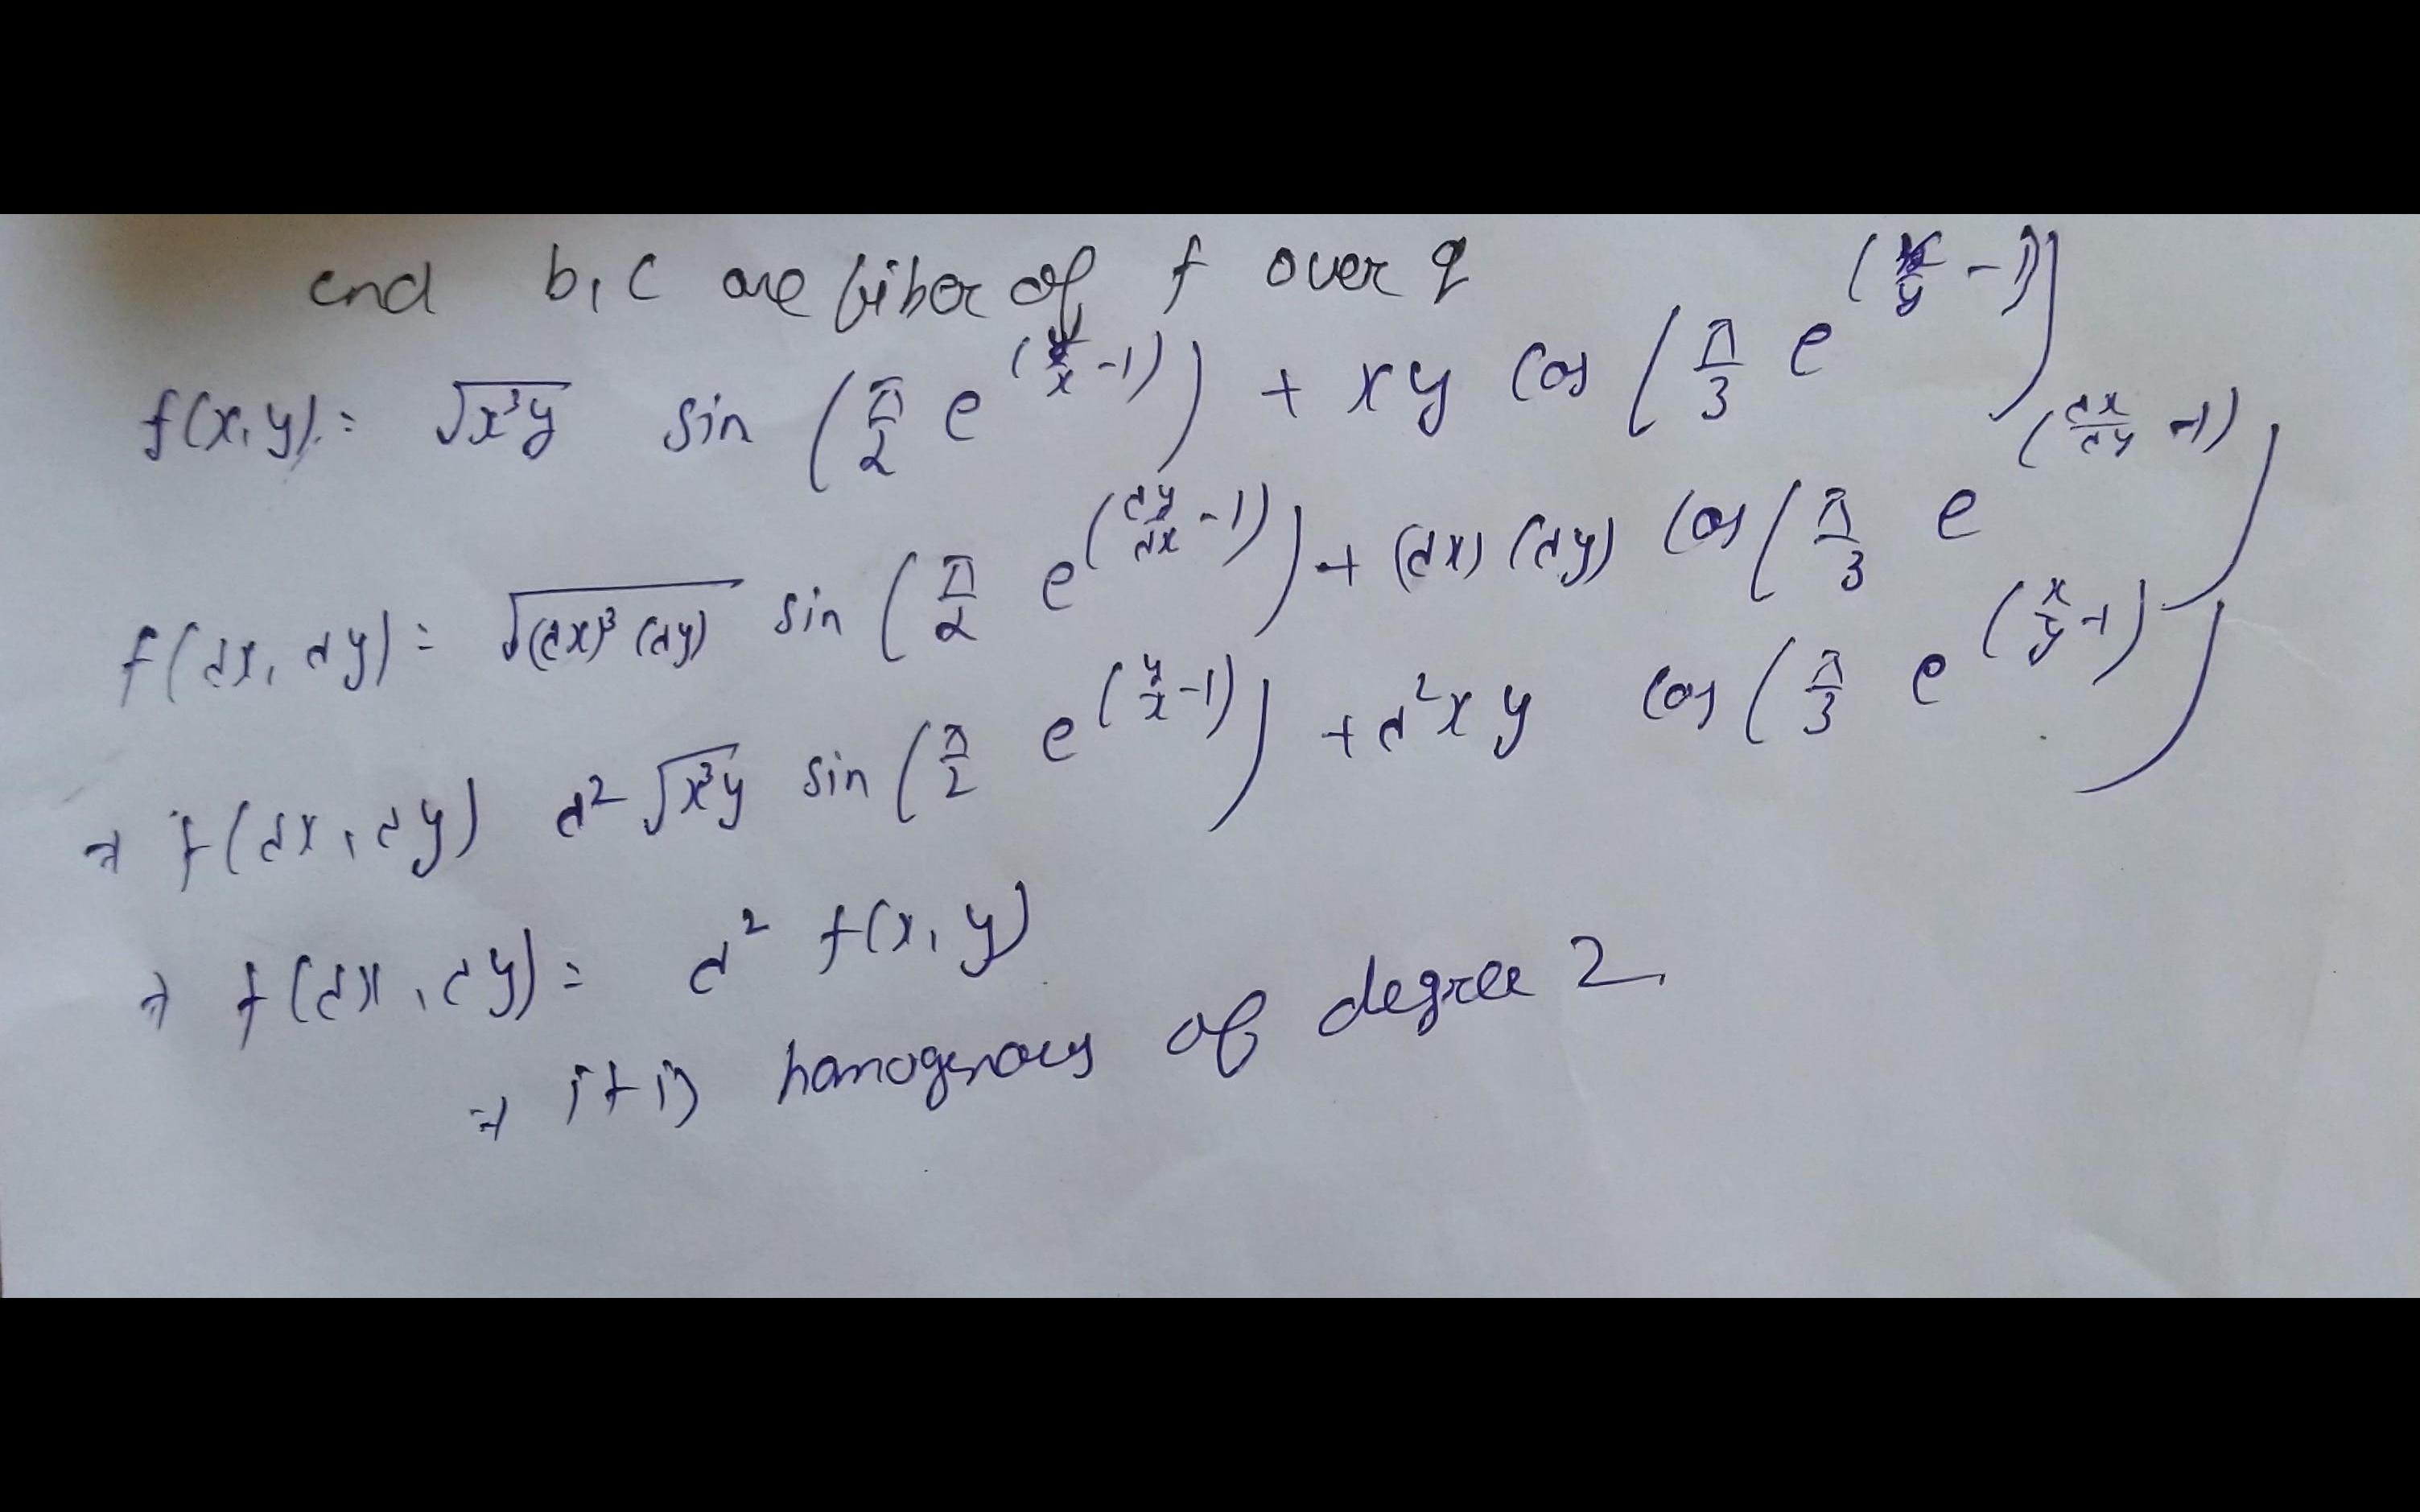 and b, c are fiber of f over q
f(x, y) = √(x³y) sin (π/2 e^(y/x - 1)) + xy cos (π/3 e^(x/y - 1))
f(λx, λy) = √((λx)³ (λy)) sin (π/2 e^(λy/λx - 1)) + (λx) (λy) cos (π/3 e^(λx/λy - 1))
⇒ f(λx, λy) λ² √(x³y) sin (π/2 e^(y/x - 1)) + λ²xy cos (π/3 e^(x/y - 1))
⇒ f(λx, λy) = λ² f(x, y)
⇒ it is homogenous of degree 2.